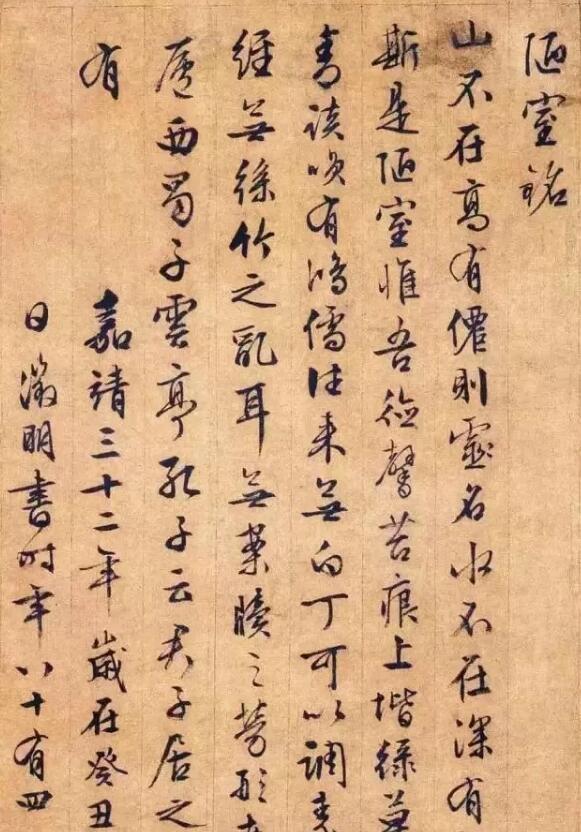 陋室銘
山不在高有僊則靈名水不在深有
斯是陋室惟吾德馨苔痕上堦緑草
青談咲有鴻儒往來無白丁可以調素
經無絲竹之亂耳無案牘之勞形
廬西蜀子雲亭孔子云君子居之
有
嘉靖三十二年歲在癸丑
日徵明書時年八十有四